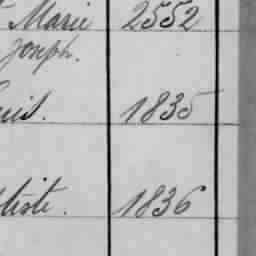 Marie 2552
Joseph.
uis. 1835
tiste. 1836